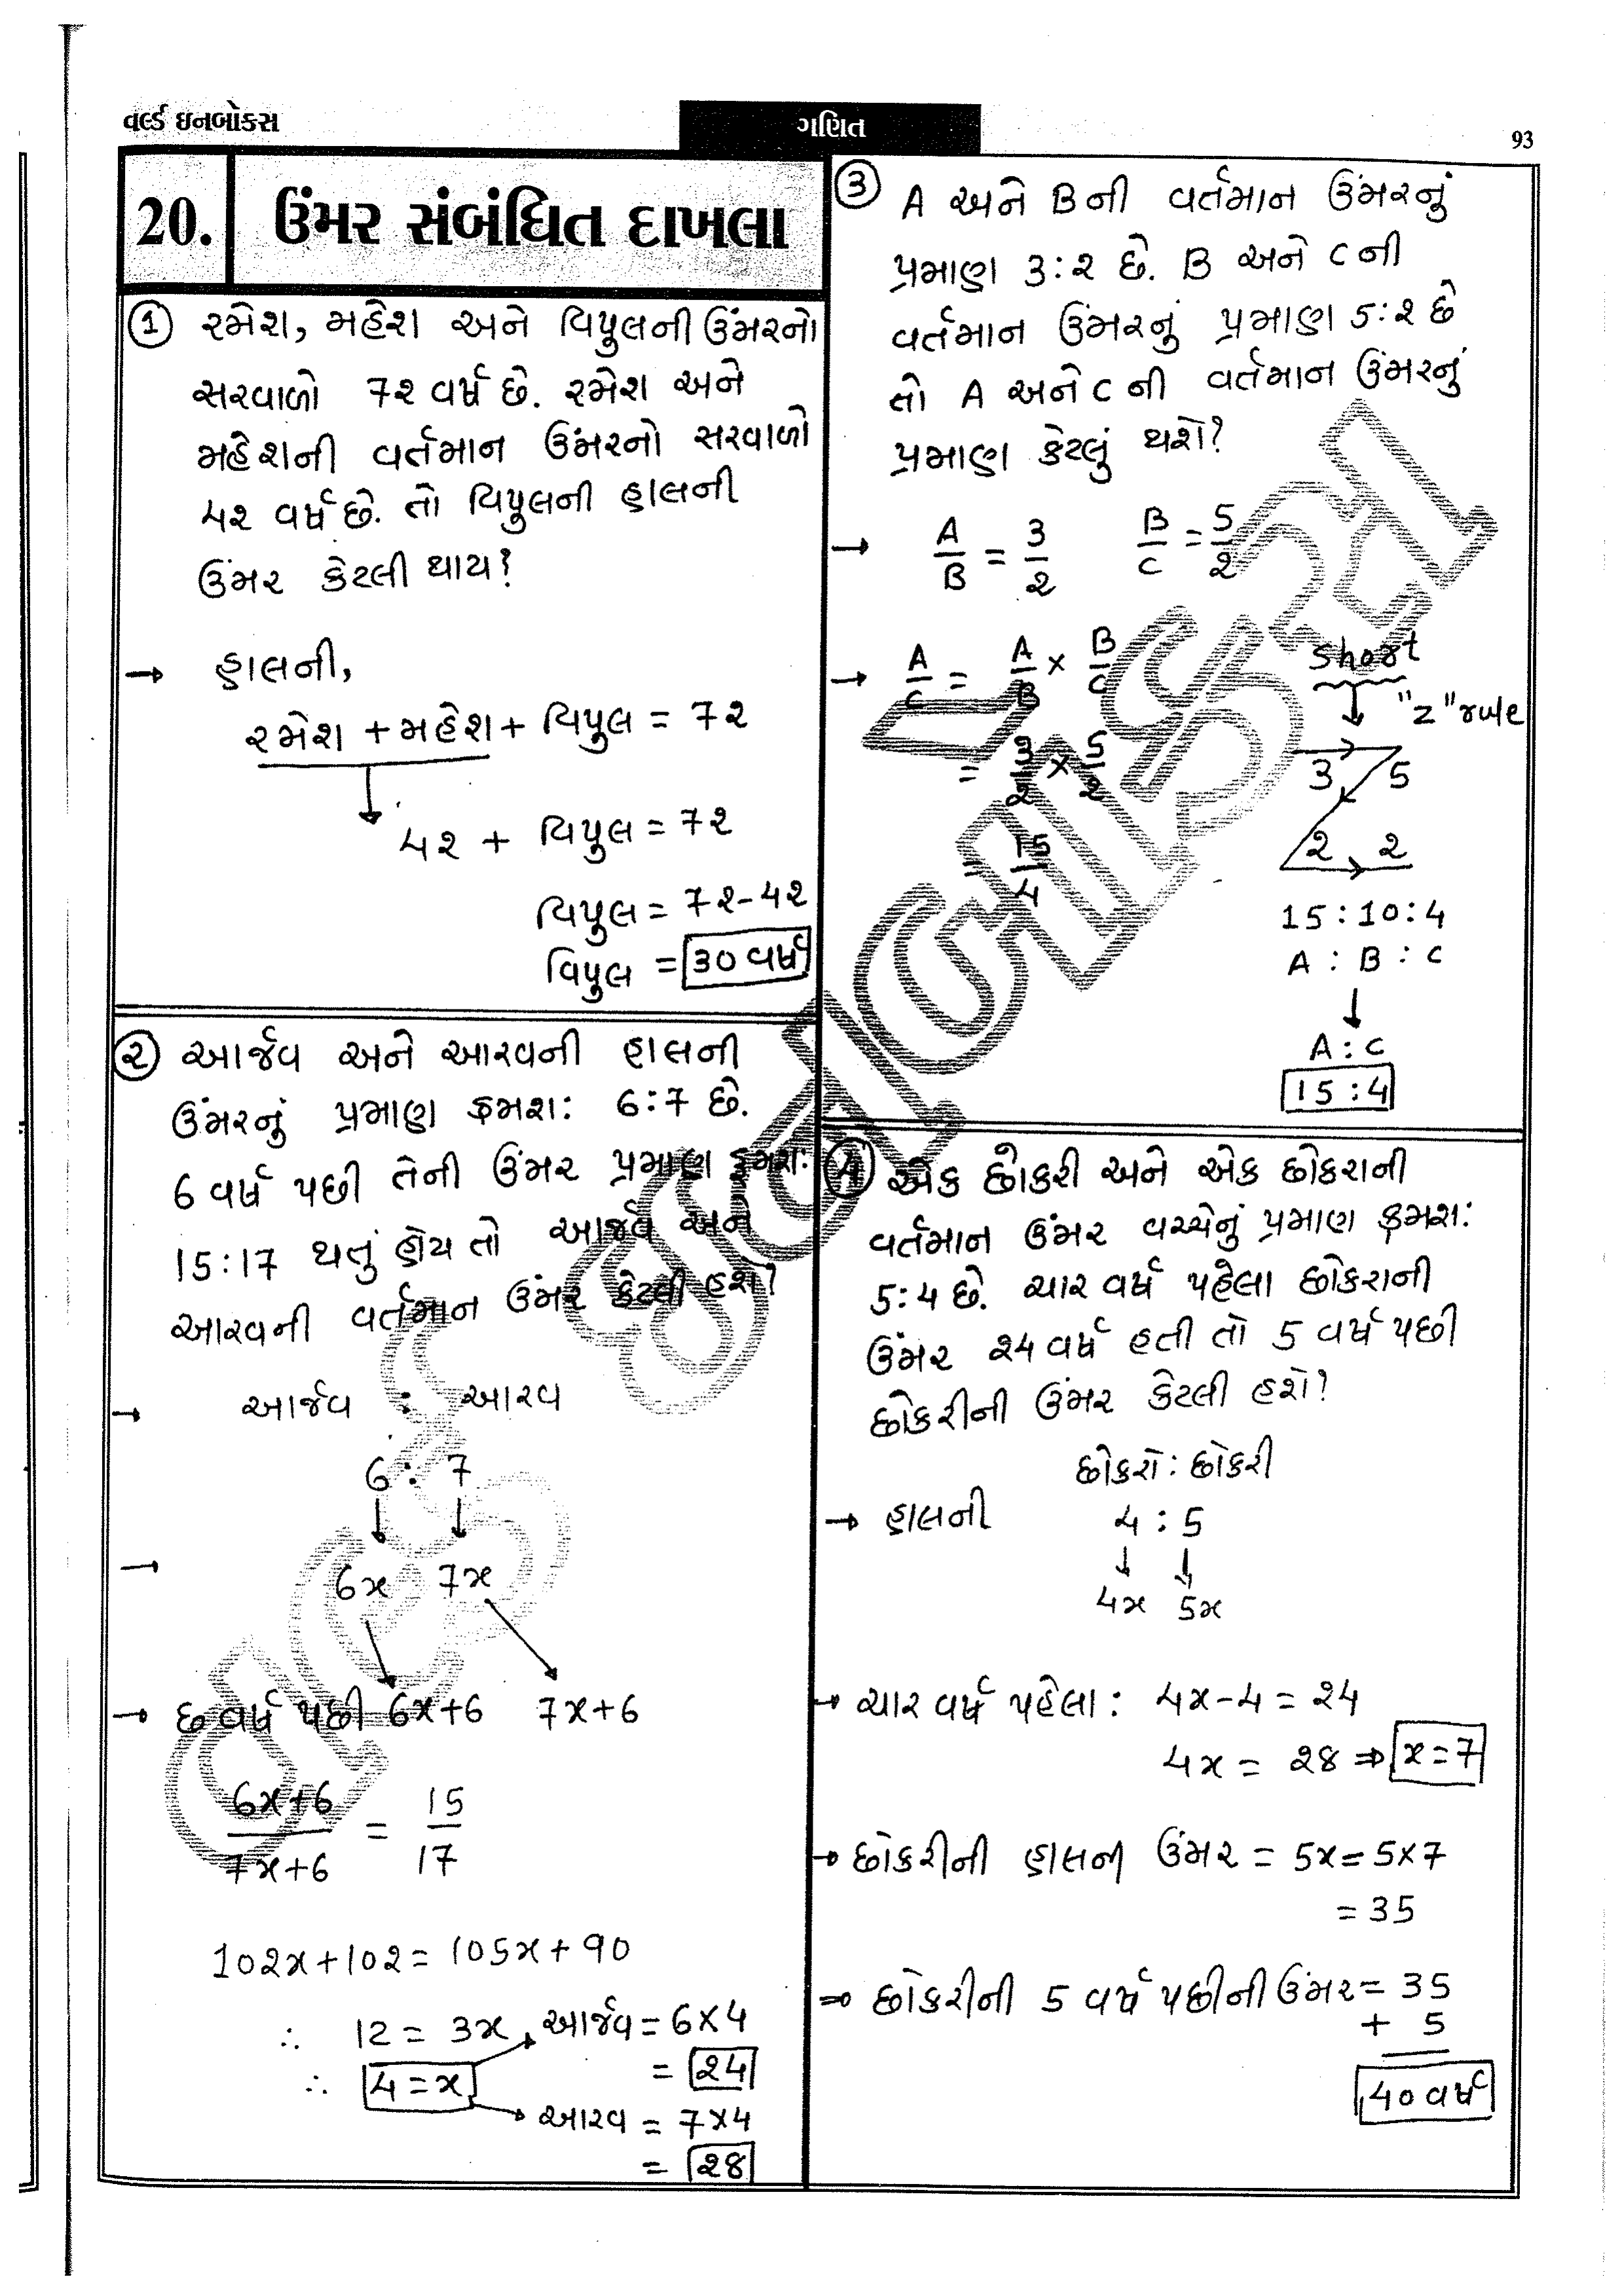 વર્લ્ડ ઇનબોક્સ
ગણિત
93
20. ઉંમર સંબંધિત દાખલા
① રમેશ, મહેશ અને વિપુલની ઉંમરનો
સરવાળો 72 વર્ષ છે. રમેશ અને
મહેશની વર્તમાન ઉંમરનો સરવાળો
42 વર્ષ છે. તો વિપુલની હાલની
ઉંમર કેટલી થાય?
→ હાલની,
રમેશ + મહેશ + વિપુલ = 72
42 + વિપુલ = 72
વિપુલ = 72-42
વિપુલ = 30 વર્ષ
② આર્જવ અને આરવની હાલની
ઉંમરનું પ્રમાણ ક્રમશ: 6:7 છે.
6 વર્ષ પછી તેની ઉંમર પ્રમાણ ક્રમશ:
15:17 થતું હોય તો આર્જવ અને
આરવની વર્તમાન ઉંમર કેટલી હશે?
→ આર્જવ : આરવ
6 : 7
→ 6x 7x
→ છ વર્ષ પછી 6x+6 7x+6
6x+6 / 7x+6 = 15 / 17
102x+102 = 105x+90
∴ 12 = 3x
∴ 4 = x
આર્જવ = 6x4
= 24
આરવ = 7x4
= 28
③ A અને B ની વર્તમાન ઉંમરનું
પ્રમાણ 3:2 છે. B અને C ની
વર્તમાન ઉંમરનું પ્રમાણ 5:2 છે
તો A અને C ની વર્તમાન ઉંમરનું
પ્રમાણ કેટલું થશે?
→ A/B = 3/2 B/C = 5/2
→ A/C = A/B × B/C
= 3/2 × 5/2
= 15/4
Short
"Z" rule
3 5
2 2
15:10:4
A : B : C
A : C
15 : 4
④ એક છોકરી અને એક છોકરાની
વર્તમાન ઉંમર વચ્ચેનું પ્રમાણ ક્રમશ:
5:4 છે. ચાર વર્ષ પહેલા છોકરાની
ઉંમર 24 વર્ષ હતી તો 5 વર્ષ પછી
છોકરીની ઉંમર કેટલી હશે?
છોકરો : છોકરી
→ હાલની 4 : 5
4x 5x
→ ચાર વર્ષ પહેલા : 4x-4 = 24
4x = 28 ⇒ x=7
→ છોકરીની હાલની ઉંમર = 5x = 5x7
= 35
⇒ છોકરીની 5 વર્ષ પછીની ઉંમર = 35
+ 5
40 વર્ષ